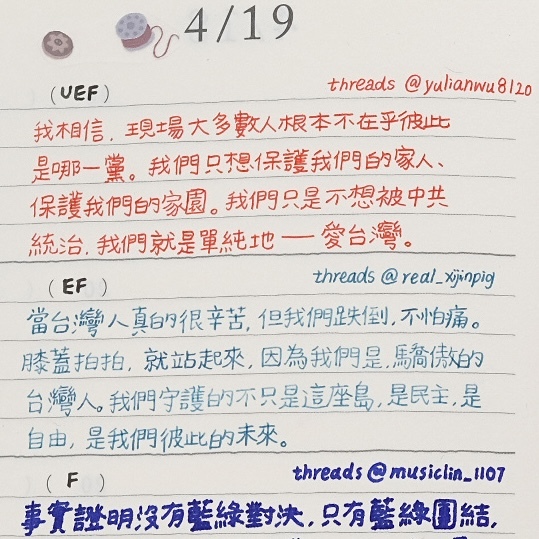 4/19
(UEF) threads @yulianwu8120
我相信，現場大多數人根本不在乎彼此
是哪一黨。我們只想保護我們的家人、
保護我們的家園。我們只是不想被中共
統治，我們就是單純地——愛台灣。
(EF) threads @real_xijinpig
當台灣人真的很辛苦，但我們跌倒，不怕痛。
膝蓋拍拍，就站起來，因為我們是，驕傲的
台灣人。我們守護的不只是這座島，是民主，是
自由，是我們彼此的未來。
(F) threads @musiclin_1107
事實證明沒有藍綠對決，只有藍綠團結，